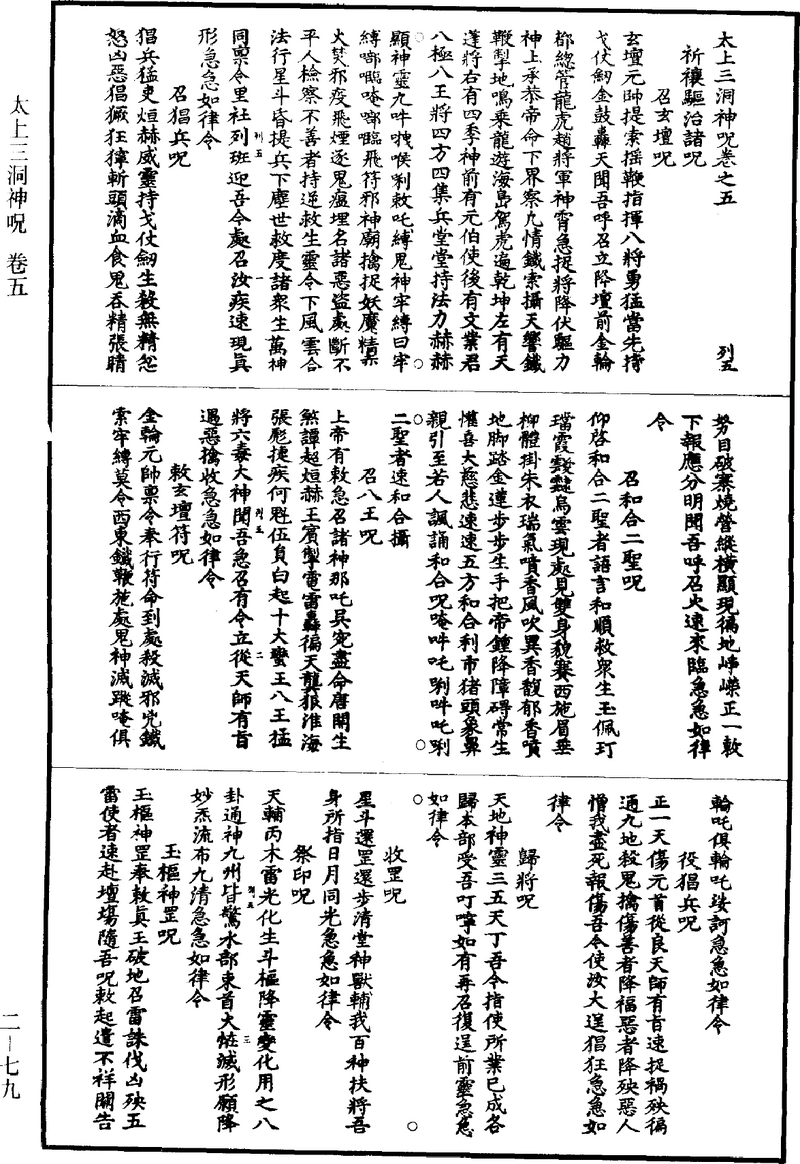 太上三洞神呪卷之五 列五
祈禳驅治諸呪
召玄壇呪
玄壇元帥提索搖鞭指揮八將勇猛當先持
戈仗劒金鼓轟天聞吾呼召立降壇前金輪
都總管龍虎趙將軍神霄急捉將降伏驅力
神上承恭帝命下界察九情鐵索攝天響鐵
鞭掣地鳴乘龍遊海島駕虎遍乾坤左有天
蓬將右有四季神前有元伯使後有文業君
八極八王將四方四集兵堂堂持法力赫赫
顯神靈九吽拽喉唎敕吒縛鬼神牢縛曰牢
縛唧𠾱唵唧𠾱飛符邪神廟擒捉妖魔精
火焚邪疫飛煙逐鬼瘟埋名諸惡盜處斷不
平人檢察不善者持逆救生靈令下風雲合
法行星斗昏提兵下塵世救度諸衆生萬神
同禀令里社列班迎吾令處召汝疾速現眞
形急急如律令
召猖兵呪
猖兵猛吏烜赫威靈持戈仗劒生殺無精忿
怒凶惡猖獗狂獰斬頭滴血食鬼吞精張睛
努目破寨燒營縱横顯現徧地崢嶸正一敕
下報應分明聞吾呼召火速來臨急急如律
令
召和合二聖呪
仰啓和合二聖者語言和順救衆生玉佩玎
璫霞靉靆烏雲現處見雙身貌賽西施眉垂
柳體掛朱衣瑞氣噴香風吹異香馥郁香噴
地脚踏金蓮步步生手把帝鍾降障礙常生
懽喜大慈悲速速五方和合利市猪頭象鼻
親引至若人諷誦和合呪唵吽吒唎吽吒唎
二聖者速和合攝
召八王呪
上帝有敕急召諸神那吒具完盡命唐開生
煞譚超烜赫王賔掣電雷轟徧天龔狠淮海
張彪捷疾何魁伍負白起十大蠻王八王猛
將六毒大神聞吾急召有令立從天師有旨
遇惡擒收急急如律令
敕玄壇符呪
金輪元帥禀令奉行符命到處殺滅邪兇鐵
索牢縛莫令西東鐵鞭施處鬼神滅蹤唵俱
輪吒俱輪吒娑訶急急如律令
役猖兵呪
正一天傷元首從良天師有旨速捉禍殃徧
通九地殺鬼擒傷善者降福惡者降殃惡人
憎我盡死報傷吾令使汝大逞猖狂急急如
律令
歸將呪
天地神靈三五天丁吾令指使所業已成各
歸本部受吾叮嚀如有再召復逞前靈急急
如律令
收罡呪
星斗還罡還步清堂神獸輔我百神扶將吾
身所指日月同光急急如律令
祭印呪
天輔丙木雷光化生斗樞降靈變化用之八
卦通神九州皆驚水部東首大滅形願降
妙炁流布九清急急如律令
玉樞神罡呪
玉樞神罡奉敕眞王破地召雷誅伐凶殃五
雷使者速赴壇塲隨吾呪敕起遣不祥關告
太上三洞神呪 卷五
二—七九